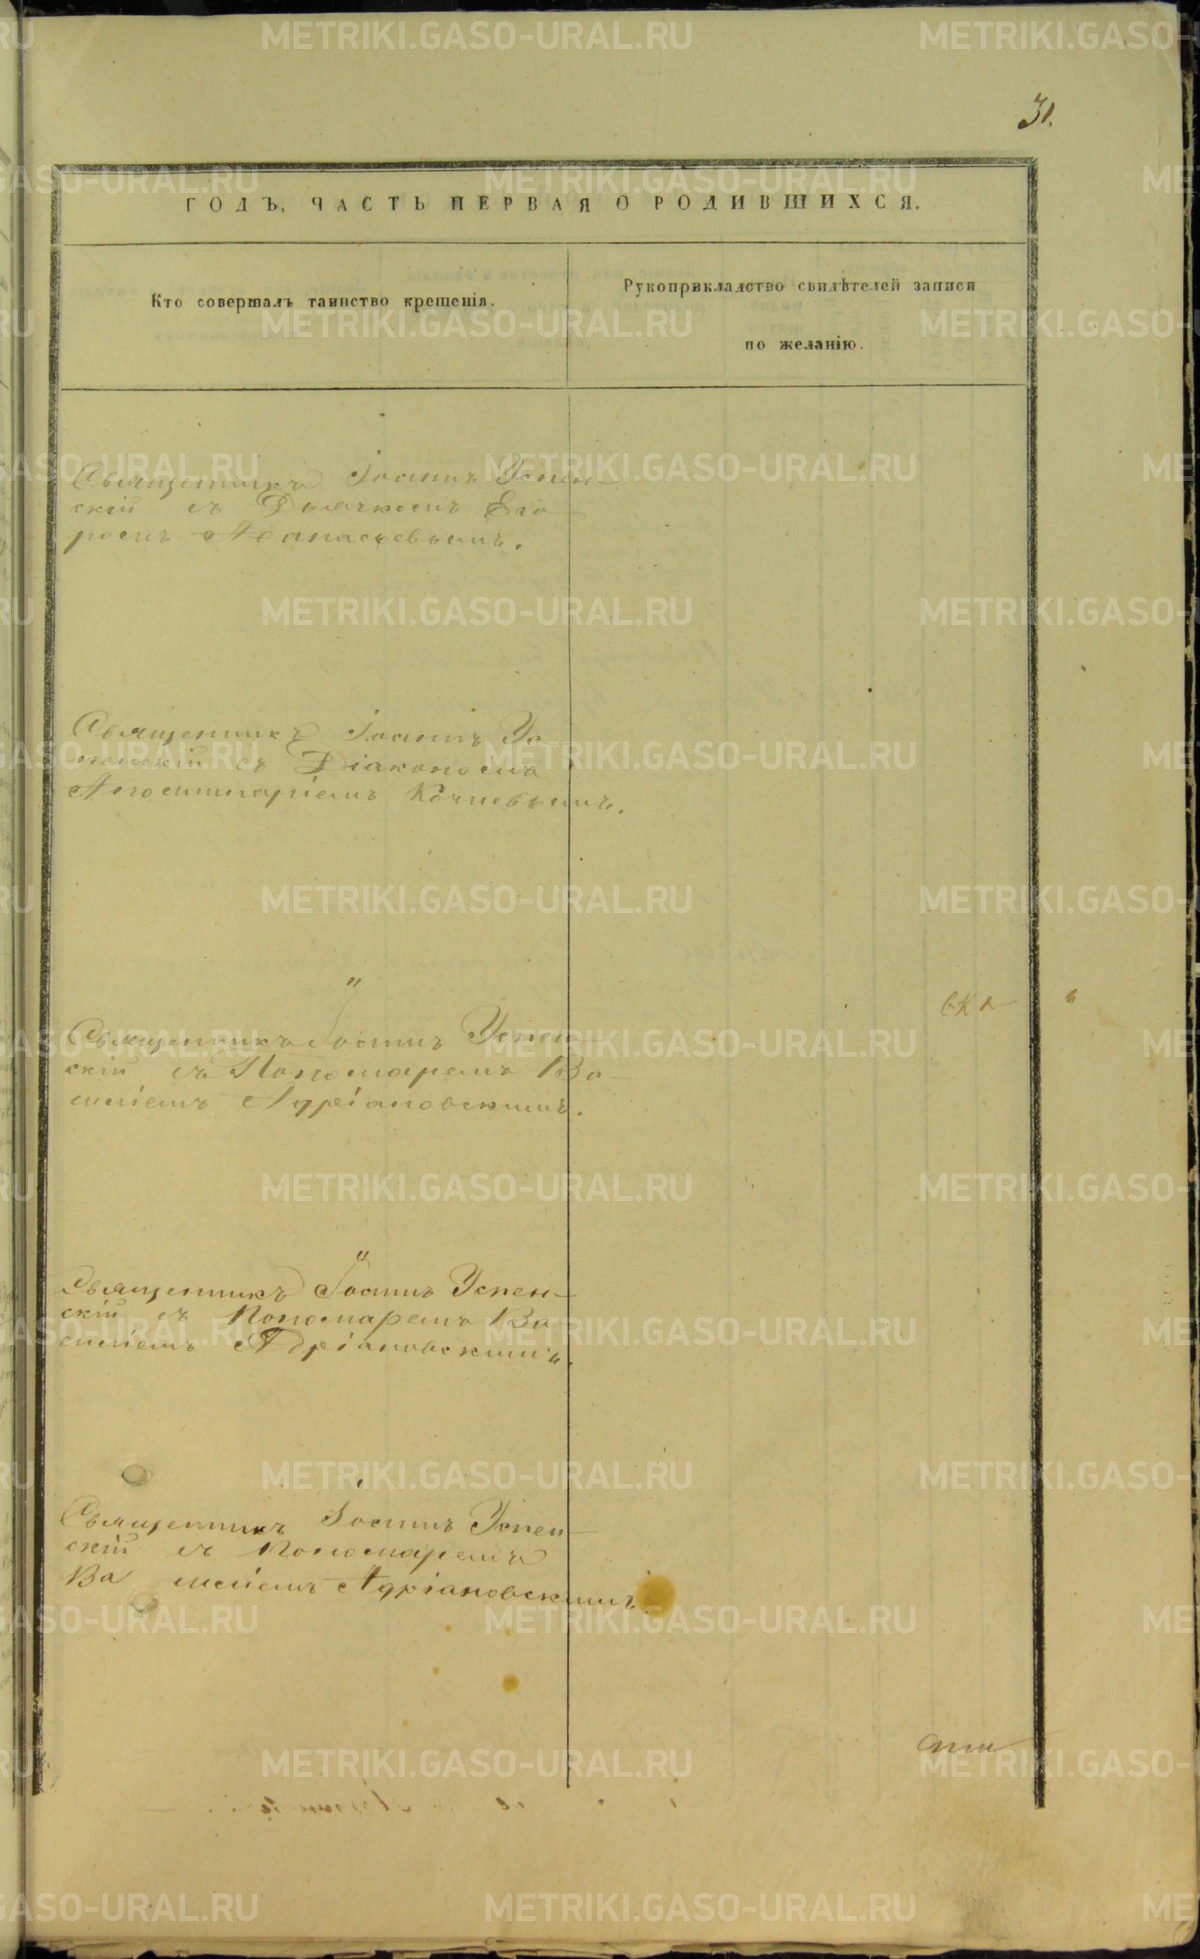 31.
ГОДЪ, ЧАСТЬ ПЕРВАЯ О РОДИВШИХСЯ.
Кто совершалъ таинство крещенія.
Рукоприкладство свидѣтелей записи
по желанію.
Священникъ Іоаннъ Успен-
скій съ Дьячкомъ Его-
ромъ Аѳанасьевымъ.
Священникъ Іоаннъ Ус-
пенскій съ Діакономъ
Аполлинаріемъ Кочневымъ.
"
Священникъ Іоаннъ Успен-
скій съ Пономаремъ Ва-
силіемъ Адріановскимъ.
"
Священникъ Іоаннъ Успен-
скій съ Пономаремъ Ва-
силіемъ Адріановскимъ.
Священникъ Іоаннъ Успен-
скій съ Пономаремъ
Василіемъ Адріановскимъ.
METRIKI.GASO-URAL.RU